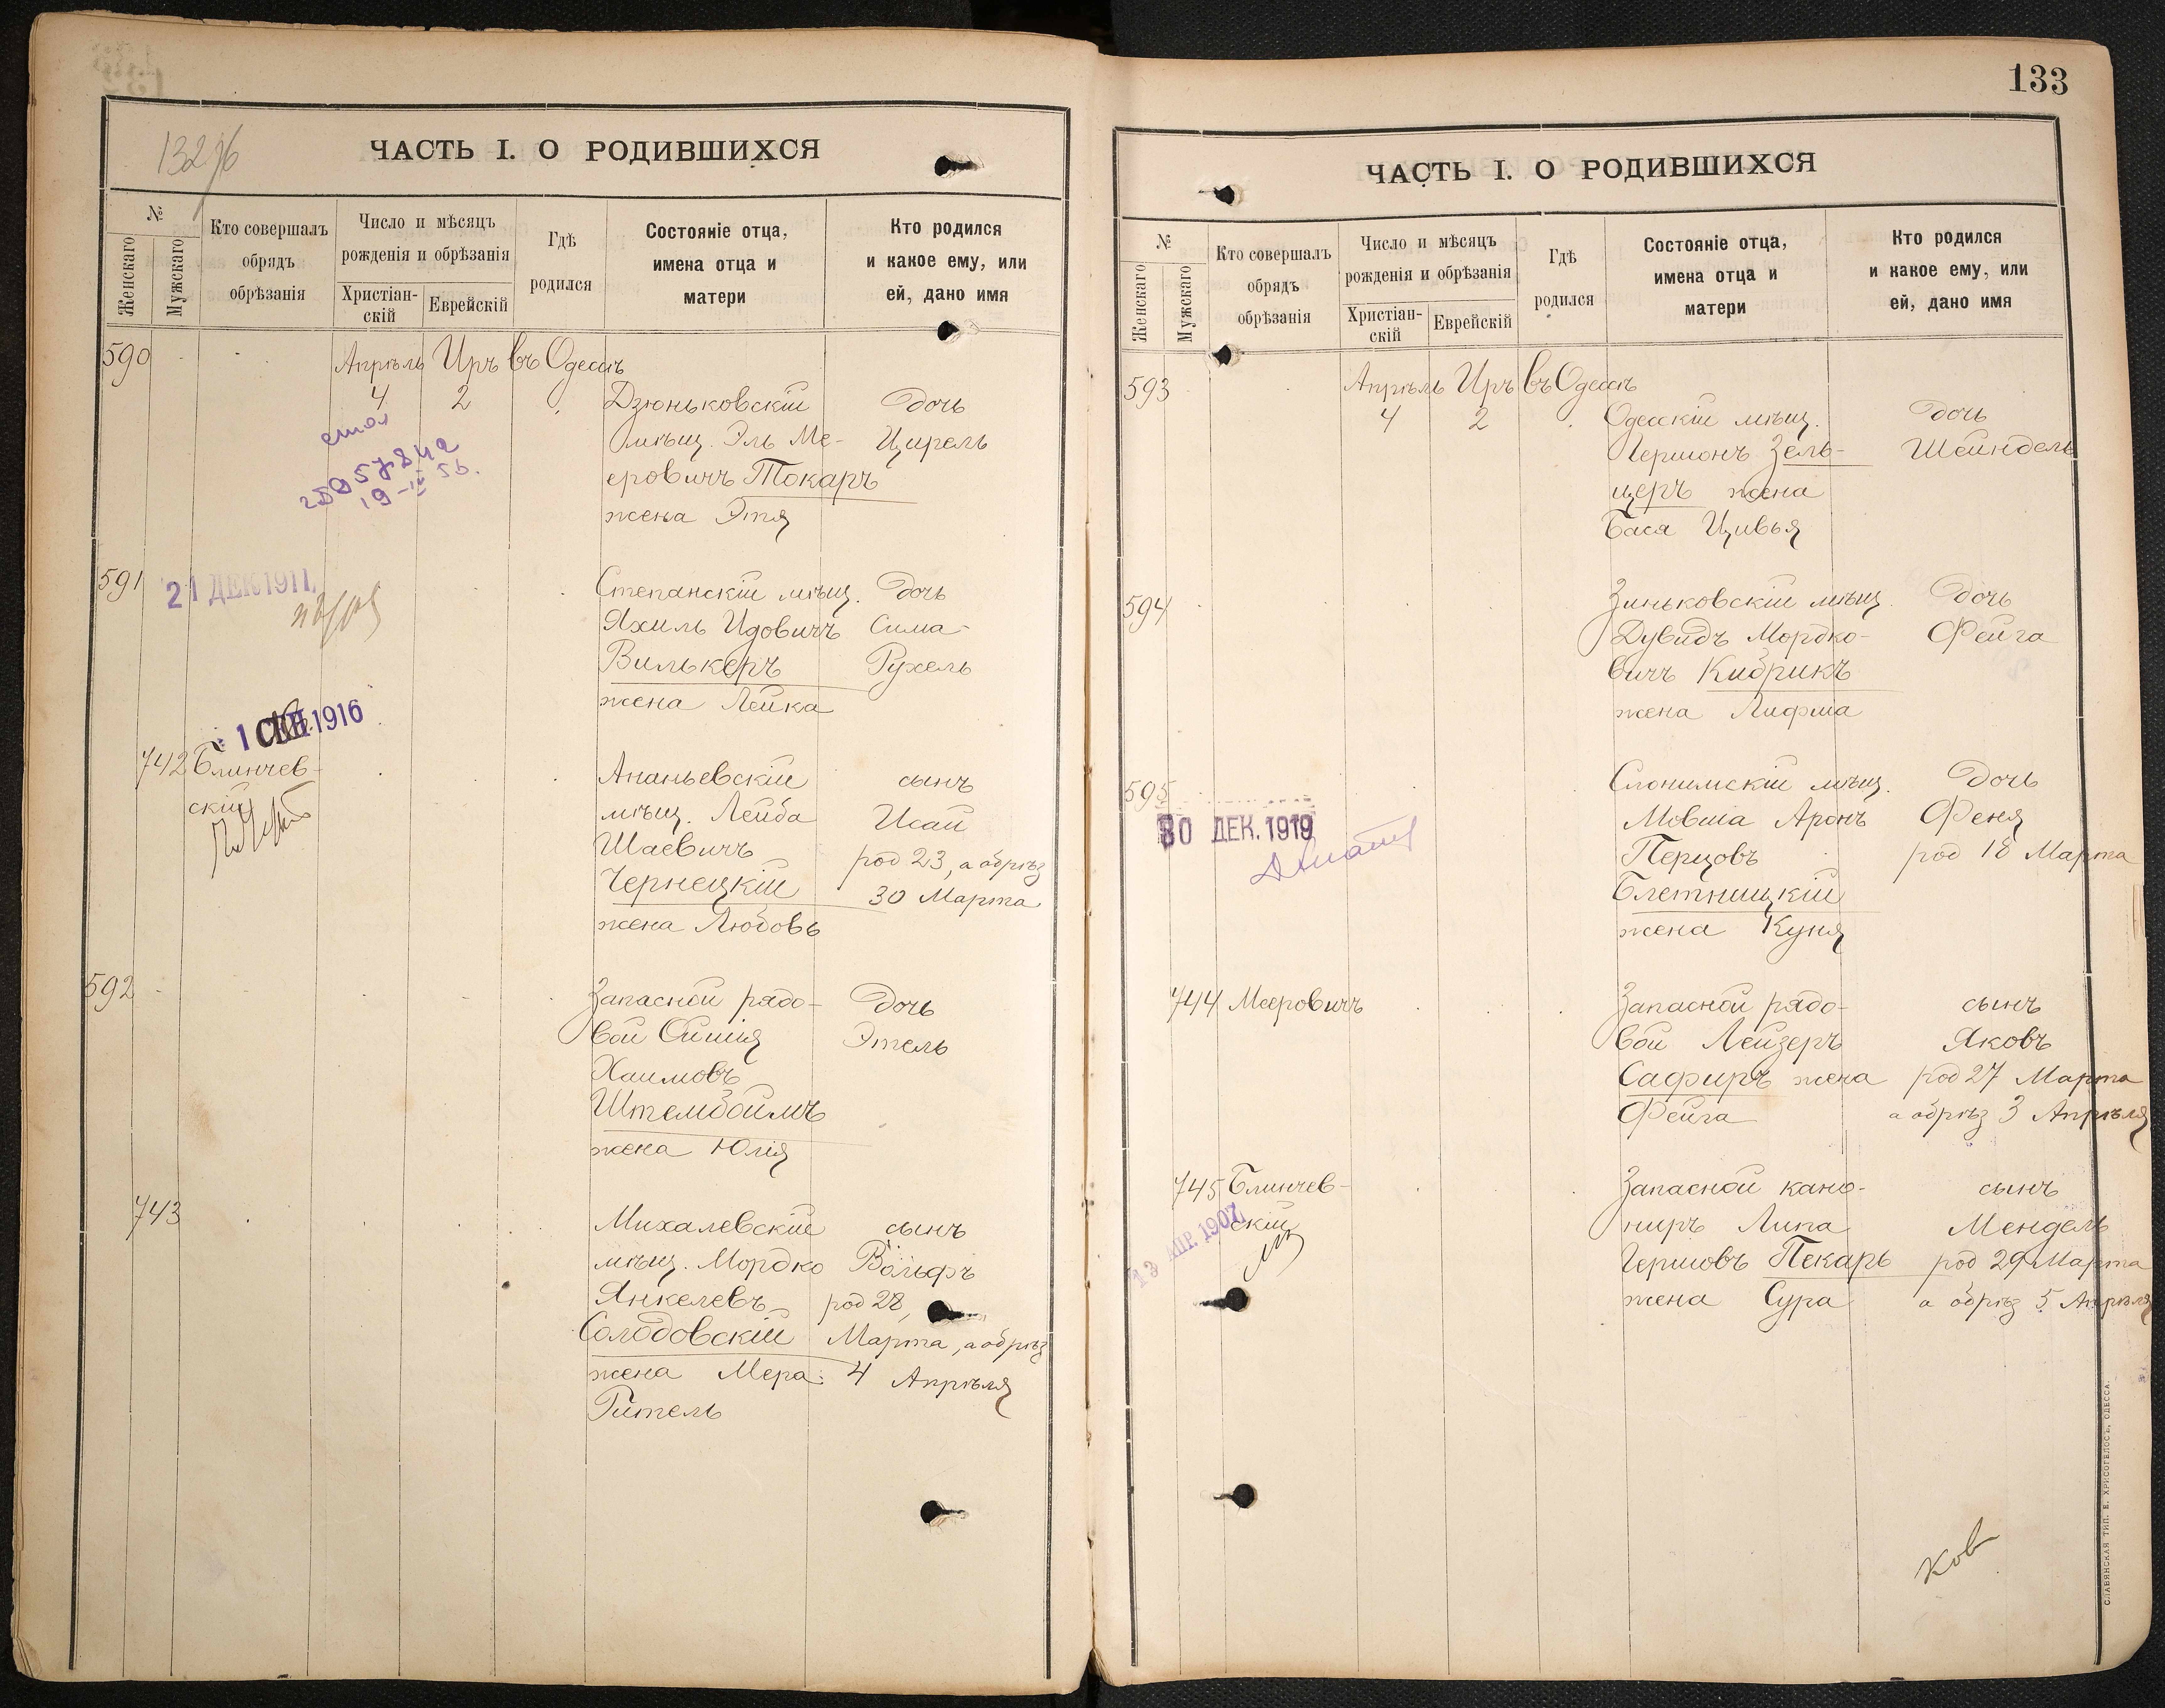 132 об
ЧАСТЬ I. О РОДИВШИХСЯ
№
Женскаго
Мужскаго
Кто совершалъ
обрядъ
обрѣзанія
Число и мѣсяцъ
рожденія и обрѣзанія
Христіан-
скій
Еврейскій
Гдѣ
родился
Состояніе отца,
имена отца и
матери
Кто родился
и какое ему, или
ей, дано имя
590
Апрѣль Иръ въ Одессѣ
4 2 Дзюньковскій Дочь
мѣщ. Эль Ме- Цирель
еровичъ Токаръ
жена Этя
19-IV 56.
591 21 ДЕК 1911 Степанскій мѣщ. Дочь
Яхиль Идовичъ Сима-
Вилькеръ Рухель
жена Лейка
1 СЕН 1916
742 Блинчев-
скій
Ананьевскій сынъ
мѣщ. Лейба Исай
Шаевичъ род 23, а обрѣз
Чернецкій 30 Марта
жена Любовь
592 Запасной рядо- Дочь
вой Ойшія Этель
Хаимовъ
Штембоймъ
жена Юлія
743 Михалевскій сынъ
мѣщ. Мордко Вольфъ
Янкелевъ род 28
Солодовскій Марта, а обрѣз
жена Мера 4 Апрѣля
Гитель
133
ЧАСТЬ I. О РОДИВШИХСЯ
№
Женскаго
Мужскаго
Кто совершалъ
обрядъ
обрѣзанія
Число и мѣсяцъ
рожденія и обрѣзанія
Христіан-
скій
Еврейскій
Гдѣ
родился
Состояніе отца,
имена отца и
матери
Кто родился
и какое ему, или
ей, дано имя
593 Апрѣль Иръ въ Одессѣ
4 2 Одесскій мѣщ. Дочь
Гершонъ Зель- Шейндель
церъ жена
Бася Цивья
594 Зиньковскій мѣщ. Дочь
Дувидъ Мордко- Фейга
вичъ Кибрикъ
жена Лифша
595 Слонимскій мѣщ. Дочь
30 ДЕК. 1919
Мовша Аронъ Феня
Перцовъ род 18 Марта
Блетницкій
жена Куня
744 Мееровичъ Запасной рядо- сынъ
вой Лейзеръ Яковъ
Сафиръ жена род 27 Марта
Фейга а обрѣз 3 Апрѣля
745 Блинчев- Запасной кано- сынъ
скій ниръ Липа Мендель
13 АПР. 1907
Гершовъ Пекарь род 29 Марта
жена Сура а обрѣз 5 Апрѣля
Ков
СЛАВЯНСКАЯ ТИП. Е. ХРИСОГЕЛОСЪ, ОДЕССА.